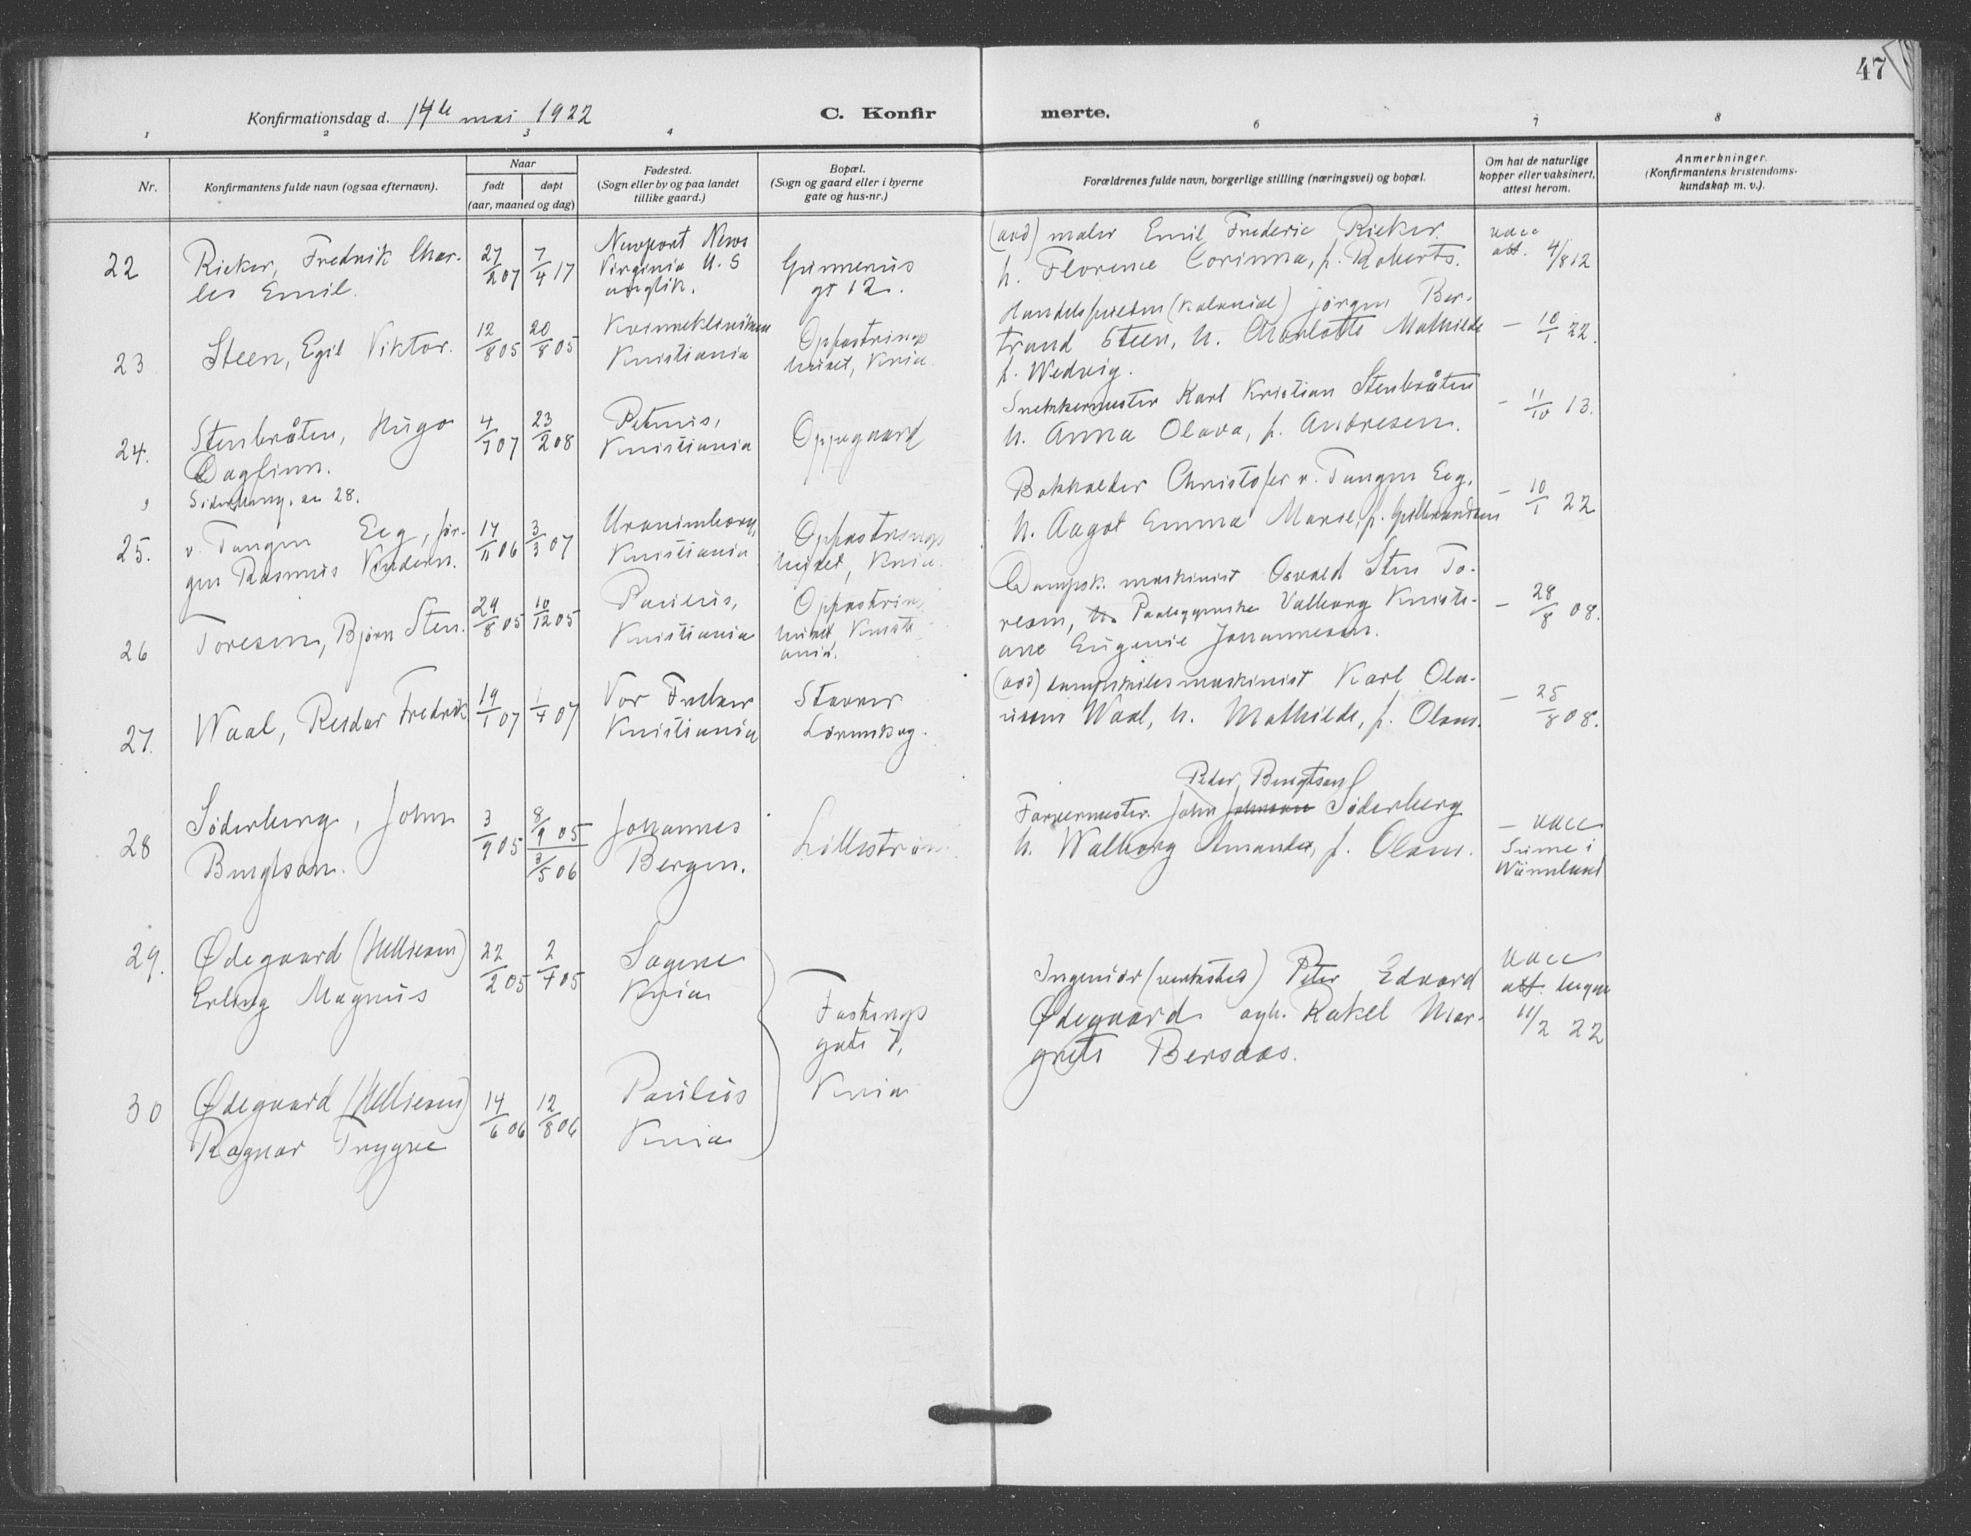 47
Konfirmationsdag d. 14de mai 1922
C. Konfirmerte.
1 2 3 4 6 7 8
Nr.
Konfirmantens fulde navn (ogsaa efternavn).
Naar
født døpt
(aar, maaned og dag)
Fødested.
(Sogn eller by og paa landet
tillike gaard.)
Bopæl.
(Sogn og gaard eller i byerne
gate og hus-nr.)
Forældrenes fulde navn, borgerlige stilling (næringsvei) og bopæl.
Om hat de naturlige
kopper eller vaksinert,
attest herom.
Anmerkninger.
(Konfirmantens kristendoms-
kundskap m. v.).
22
Rieker, Fredrik Char-
les Emil.
27/2 07
7/4 17
Newport News
Virginia U. S
anglik.
gt 12.
(avd) maler Emil Frederic Rieker.
h. Florence Corinna, f. Roberts.
vacc
att. 4/8 12
23
Steen, Egil Viktor.
12/8 05
20/8 05
Kvinneklinikken
Kristiania
Opfostrings
huset, Kria
Handelsreisen (kolonial) Jørgen Ber-
trand Steen, h. Charlotte Mathilde
f. Wedvig.
— 10/1 22.
24.
Stenbråten, Hugo
Dagfinn.
4/1 07
23/2 08
Petrus,
Kristiania
Oppegaard
Snekkermester Karl Kristian Stenbråten
h. Anna Olava, f. Andresen.
— 11/10 13.
Søderberg, se 28.
25.
v. Tangen Eeg, Jør-
gen Rasmus Vindern.
14/11 06
3/3 07
Uranienborg,
Kristiania
Opfostrings
huset, Kria.
Bokholder Christofer v. Tangen Eeg,
h. Aagot Emma Marie, f. Gulbrandsen
— 10/1 22
26
Toresen, Bjørn Sten.
29/8 05
10/12 05
Paulus,
Kristiania
Opfostrin
huset Kristi
ania.
Dampsk. maskinist Osvald Sten To-
resen, Paaleggerske Valborg Kristi-
ane Eugenie Johannesen.
— 28/8 08.
27.
Waal, Reidar Fredrik
19/1 07
1/4 07
Vor Frelser
Kristiania
Stovner
Lørenskog.
(avd) dampskibsmaskinist Karl Ola-
usen Waal, h. Mathilde, f. Olsen.
— 25/8 08.
28
Søderberg, John
Bengtson.
3/9 05
8/9 05
3/5 06
Johannes
Bergen.
Lillestrøm
Peder Bengtson
Farvermester John Johnson Søderberg
h. Walborg Amanda, f. Olsen.
— vacc
Sunne i
Wärmland
29.
Ødegaard (Helliesen)
Erling Magnus
22/2 05
2/4 05
Sagene
Kria
Fostings
gate 7,
Kria
Ingeniør (verksted) Peter Edvard
Ødegaard ogh. Rakel Mar-
grete Bersaas.
vacc
att. begge
11/2 22
30
Ødegaard (Helliesen)
Ragnar Trygve
14/6 06
12/8 06
Paulus
Kria